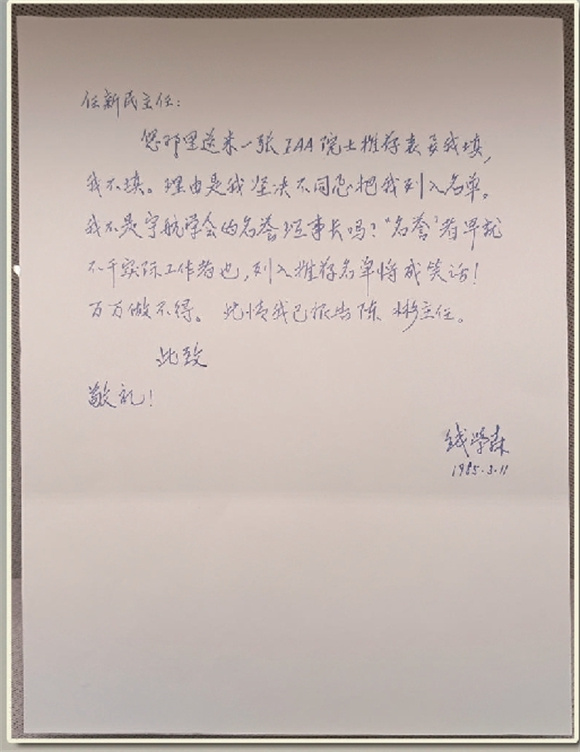 任新民主任：
您那里送来一张IAA院士推荐表要我填，
我不填。理由是我坚决不同意把我列入名单。
我不是宇航学会的名誉理事长吗？“名誉”者早就
不干实际工作者也，列入推荐名单将成笑话！
万万做不得。此情我已报告陈彬主任。
此致
敬礼！
钱学森
1985.3.11